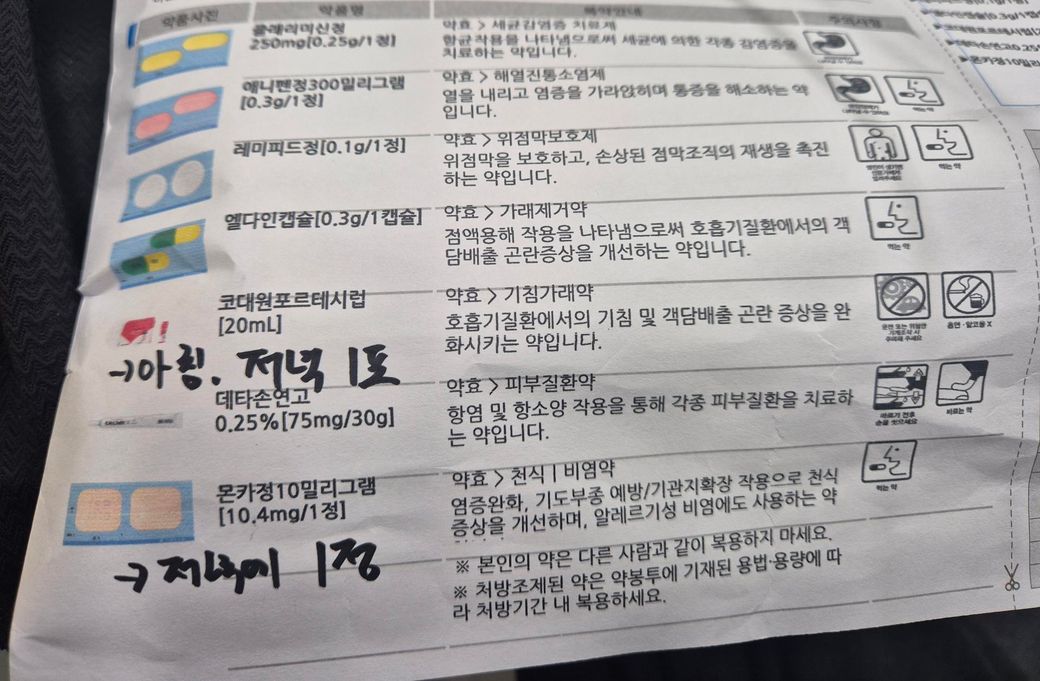 약품사진 약품명 복약안내 주의사항
클래리미신정
250mg[0.25g/1정]
약효 > 세균감염증 치료제
항균작용을 나타냄으로써 세균에 의한 각종 감염증을
치료하는 약입니다.
애니펜정300밀리그램
[0.3g/1정]
약효 > 해열진통소염제
열을 내리고 염증을 가라앉히며 통증을 해소하는 약
입니다.
먹는 약
레미피드정[0.1g/1정]
약효 > 위점막보호제
위점막을 보호하고, 손상된 점막조직의 재생을 촉진
하는 약입니다.
먹는 약
엘다인캡슐[0.3g/1캡슐]
약효 > 가래제거약
점액용해 작용을 나타냄으로써 호흡기질환에서의 객
담배출 곤란증상을 개선하는 약입니다.
먹는 약
코대원포르테시럽
[20mL]
약효 > 기침가래약
호흡기질환에서의 기침 및 객담배출 곤란 증상을 완
화시키는 약입니다.
운전 또는 위험한
기계조작 시
주의해 주세요
흡연·알코올 X
→아침. 저녁 1포
데타손연고
0.25%[75mg/30g]
약효 > 피부질환약
항염 및 항소양 작용을 통해 각종 피부질환을 치료하
는 약입니다.
바르기 전후
손을 씻으세요
바르는 약
몬카정10밀리그램
[10.4mg/1정]
약효 > 천식 | 비염약
염증완화, 기도부종 예방/기관지확장 작용으로 천식
증상을 개선하며, 알레르기성 비염에도 사용하는 약
먹는 약
→ 저녁에 1정
※ 본인의 약은 다른 사람과 같이 복용하지 마세요.
※ 처방조제된 약은 약봉투에 기재된 용법·용량에 따
라 처방기간 내 복용하세요.